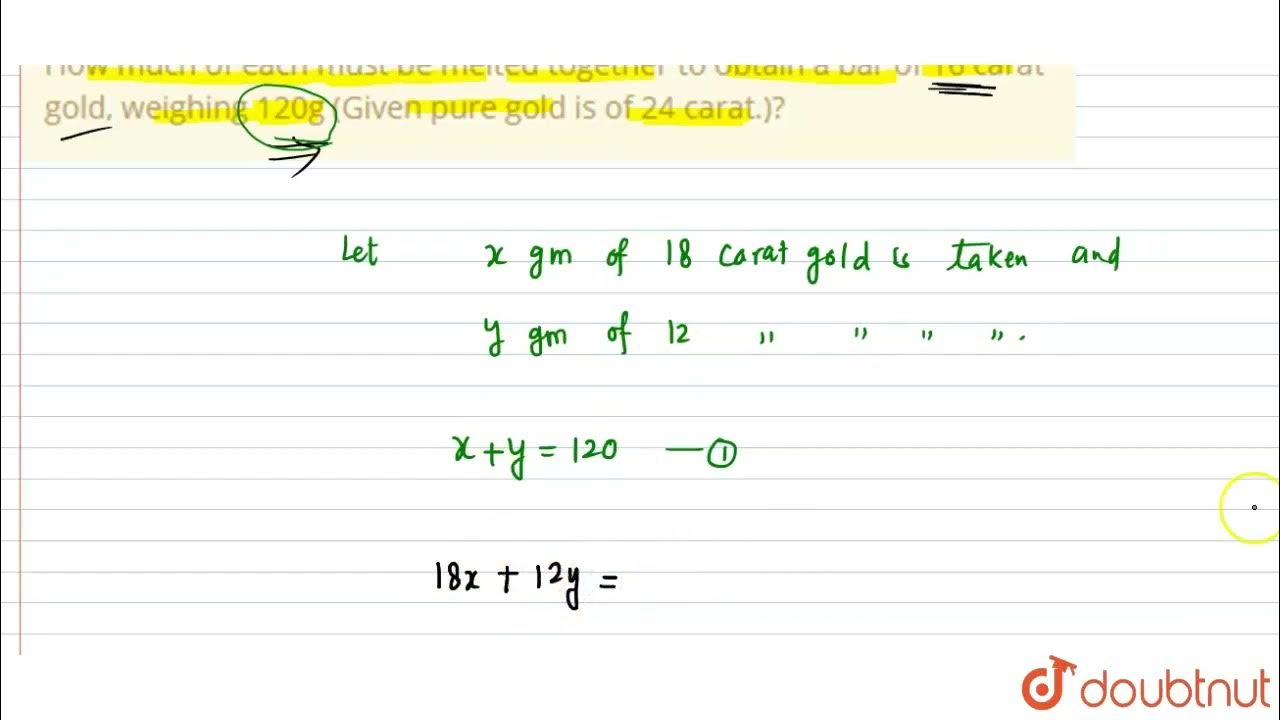 How much of each must be melted together to obtain a bar of 16 carat
gold, weighing 120g (Given pure gold is of 24 carat.)?
Let x gm of 18 carat gold is taken and
y gm of 12 " " " ".
x + y = 120 — ①
18x + 12y =
doubtnut